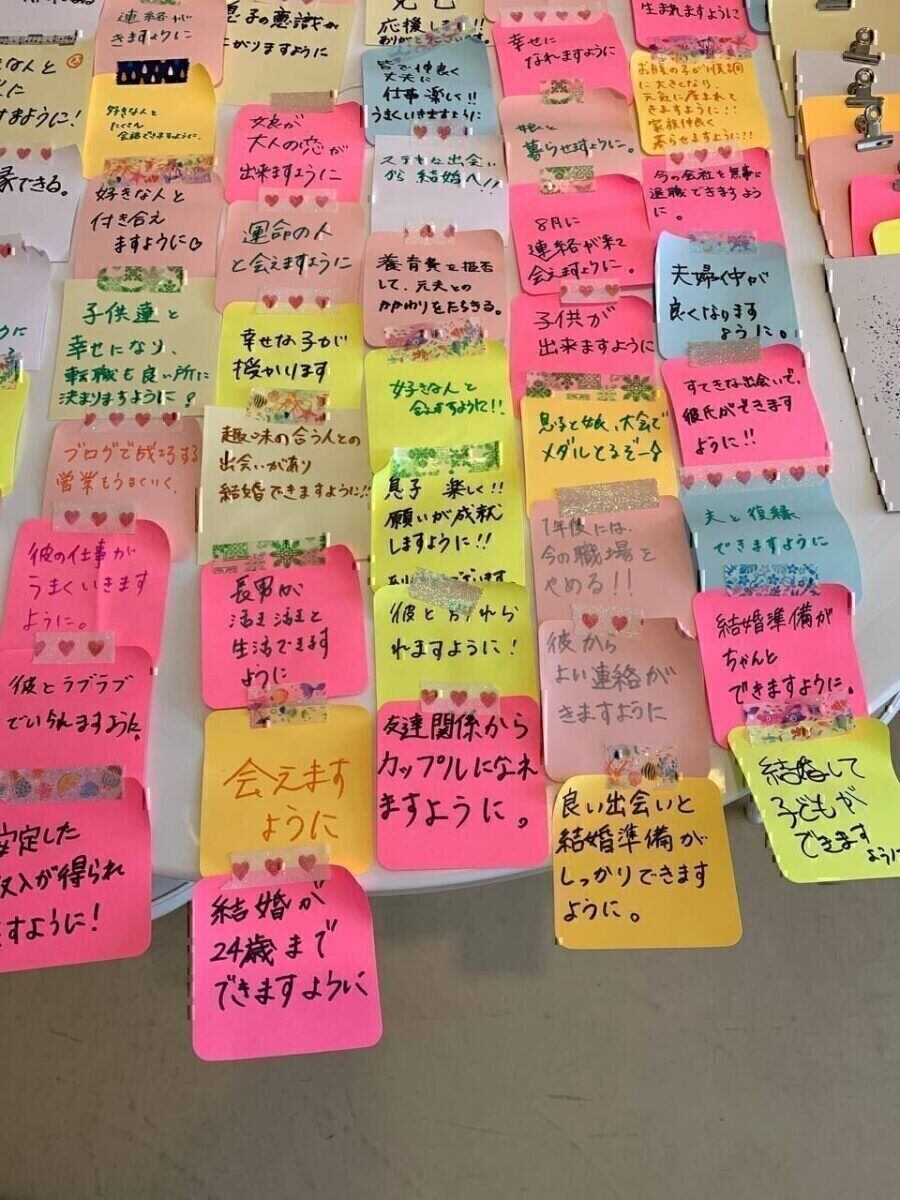 連絡が
きますように
好きな人と
たくさん
会話できますように。
好きな人と
付き合え
ますように
子供達と
幸せになり、
転職も良い所に
決まりますように!
ブログで成功する
営業もうまくいく。
彼の仕事が
うまくいきます
ように。
彼とラブラブ
でいられますように。
安定した
収入が得られ
ますように!
息子の意識が
娘が
大人の恋が
出来ますように
運命の人
と会えますように
幸せな子が
授かります
趣味の合う人との
出会いがあり
結婚できますように!!
長男が
活き活きと
生活できます
ように
会えます
ように
結婚が
24歳まで
できますように
応援します!!
ありがとうございます。
皆で仲良く
丈夫に
仕事楽しい!!
うまくいきますように
ステキな出会い
から結婚へ!!
養育費を拒否
して、元夫との
かかわりをたちきる。
好きな人と
会えますように!!
息子 楽しく!!
願いが成就
しますように!!
彼と
れますように!
友達関係から
カップルになれ
ますように。
幸せに
なれますように
暮らせますように。
8月に
連絡が来て
会えますように。
子供が
出来ますように
息子と娘、大会で
メダルとるぞー☆
1年後には、
今の職場を
やめる!!
彼から
よい連絡が
きますように
良い出会いと
結婚準備が
しっかりできます
ように。
生まれますように
お腹の子が順調
に大きくなり、
元気に産まれて
きますように!!
家族仲良く
暮らせますように!!
今の会社を無事に
退職できますよう
に。
夫婦仲が
良くなります
ように。
すてきな出会いで、
彼氏ができます
ように!!
夫と復縁
できますように
結婚準備が
ちゃんと
できますように。
結婚して
子どもが
できます
ように